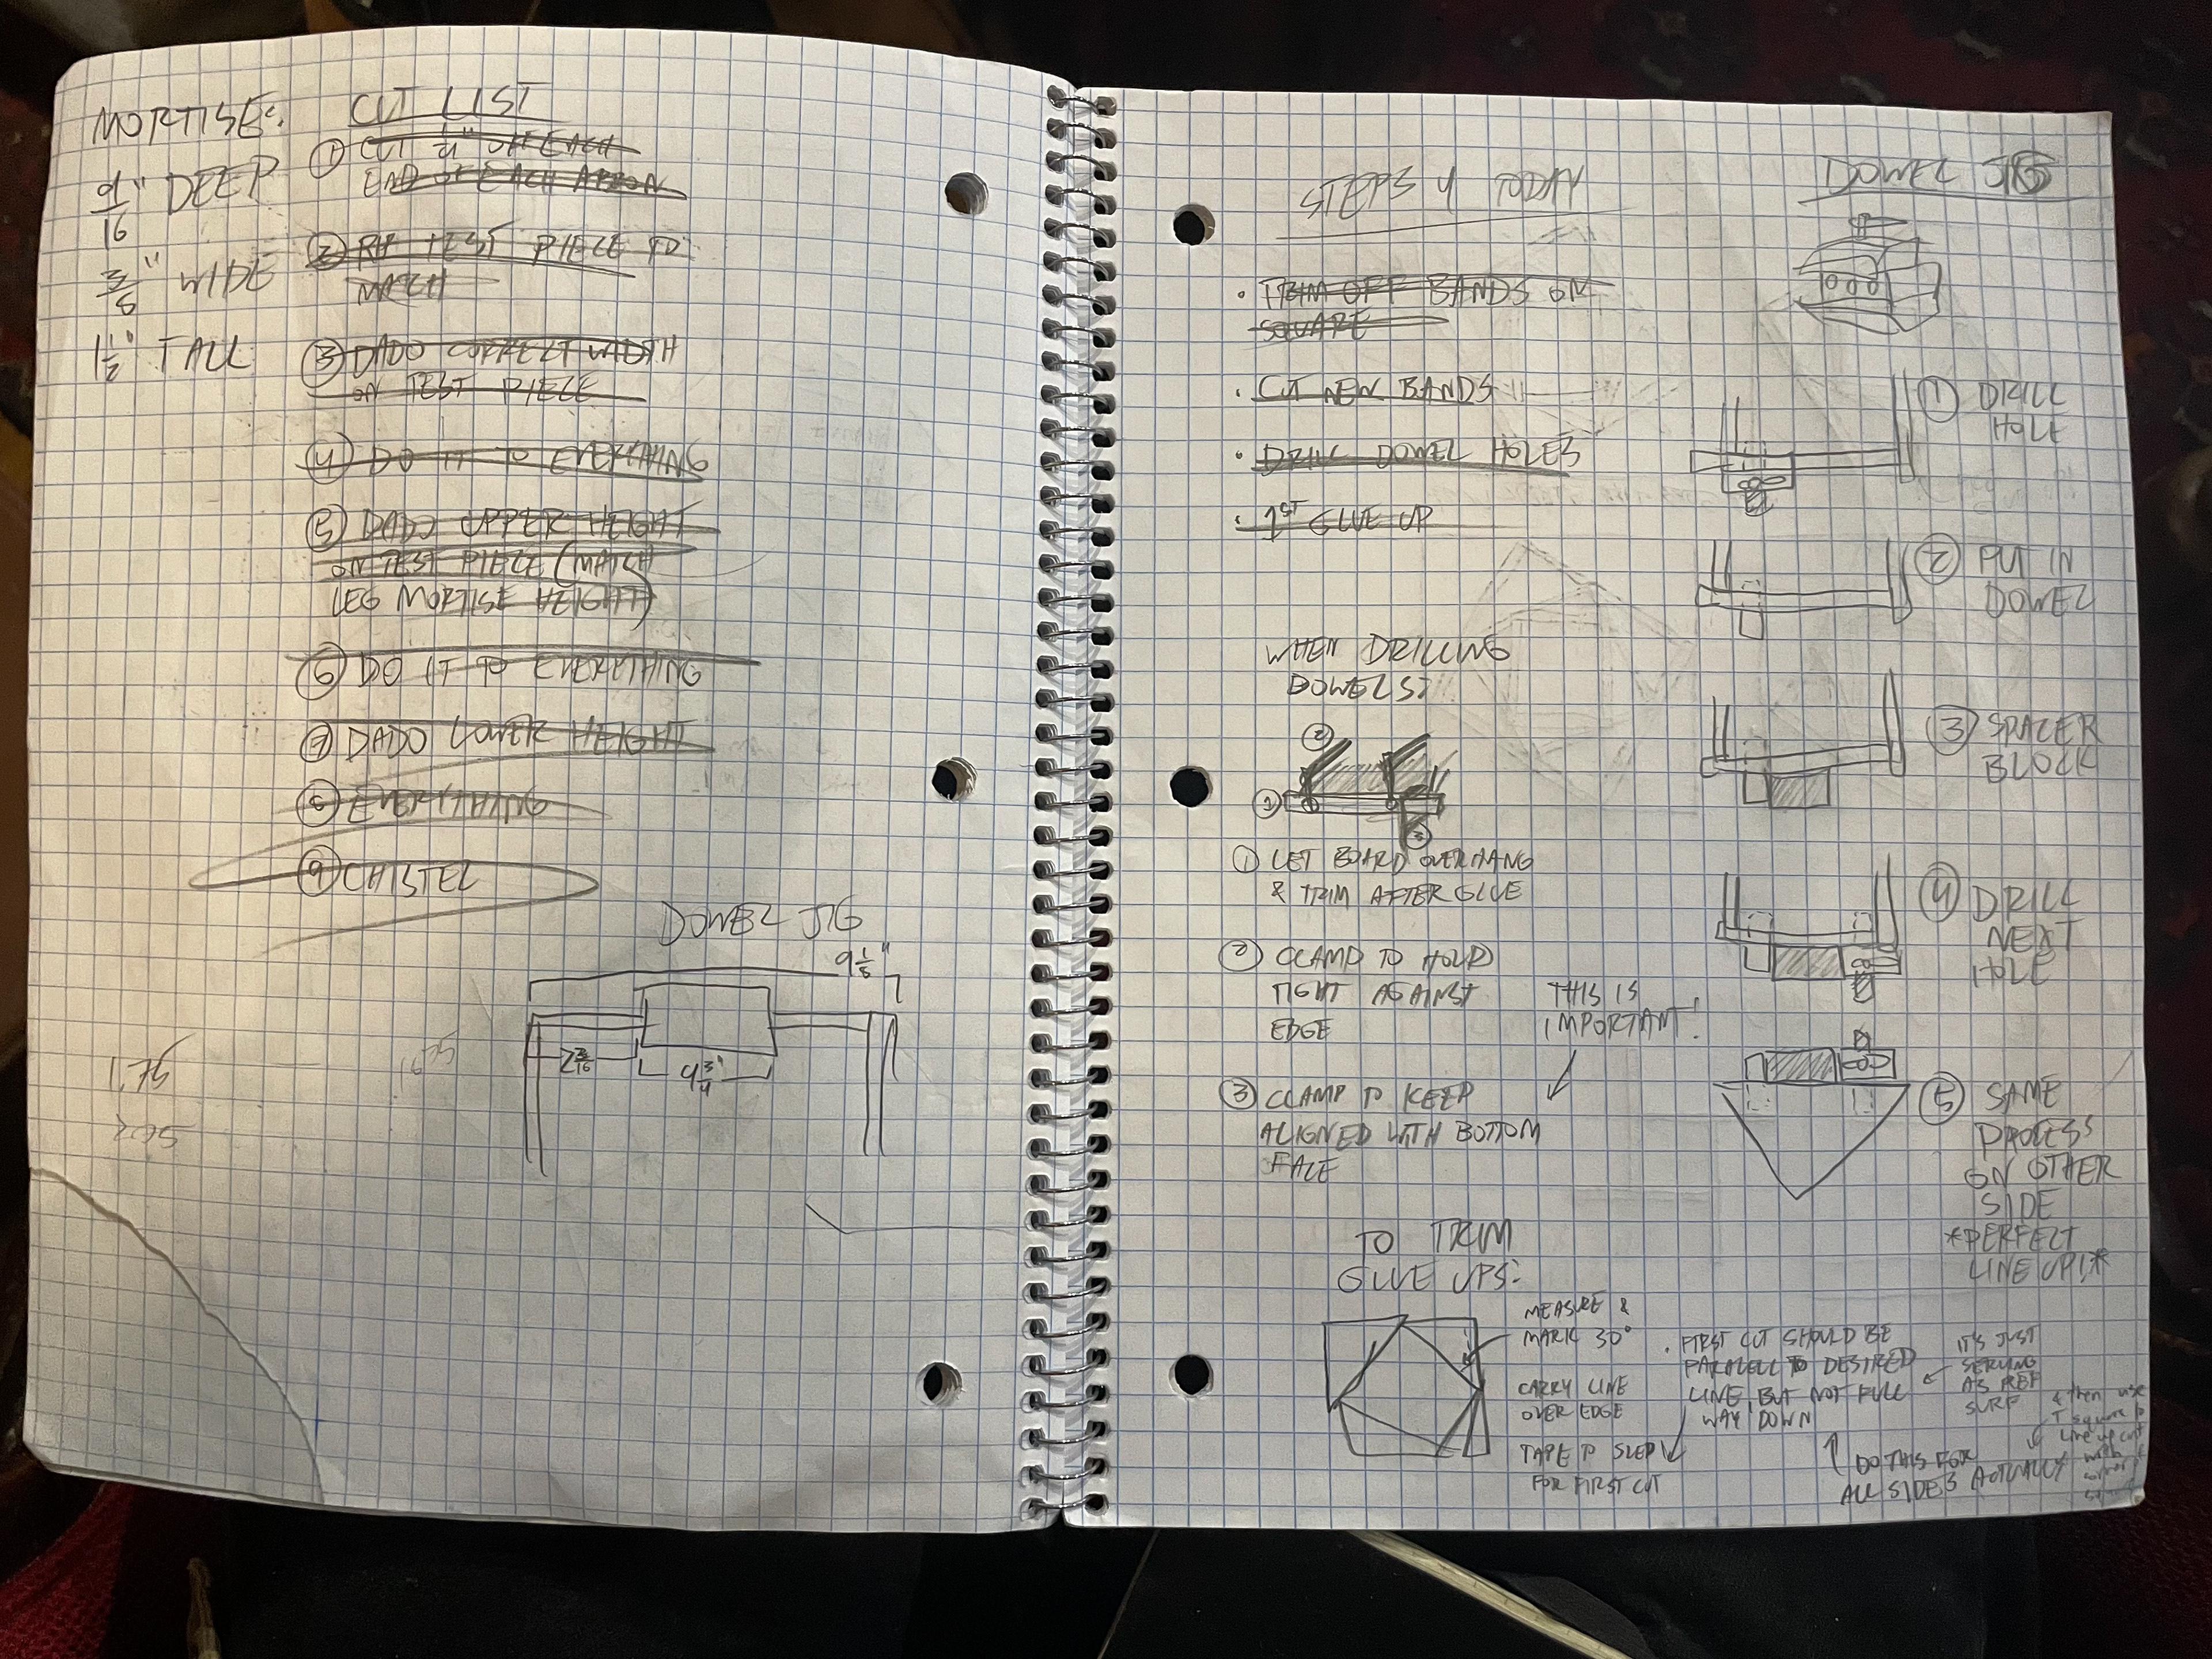 MORTISES:
9/16" DEEP
3/8" WIDE
1 1/2" TALL
CUT LIST
① CUT 1/4" OFF EACH
END OF EACH APRON
② RIP TEST PIECE TO
MATCH
③ DADO CORRECT WIDTH
ON TEST PIECE
④ DO IT TO EVERYTHING
⑤ DADO UPPER HEIGHT
ON TEST PIECE (MATCH
LEG MORTISE HEIGHT)
⑥ DO IT TO EVERYTHING
⑦ DADO LOWER HEIGHT
⑧ EVERYTHING
⑨ CHISTEL
DOWEL JIG
2 3/16
4 3/4"
1.75
STEPS 4 TODAY
• TRIM OFF BANDS ON
SQUARE
• CUT NEW BANDS
• DRILL DOWEL HOLES
• 1ST GLUE UP
WHEN DRILLING
DOWELS:
②
①
③
① LET BOARD OVERHANG
& TRIM AFTER GLUE
② CLAMP TO HOLD
TIGHT AGAINST
EDGE
THIS IS
IMPORTANT!
③ CLAMP TO KEEP
ALIGNED WITH BOTTOM
FACE
TO TRIM
GLUE UPS:
MEASURE &
MARK 30°
CARRY LINE
OVER EDGE
TAPE TO SLED
FOR FIRST CUT
• FIRST CUT SHOULD BE
PARALELL TO DESIRED
LINE, BUT NOT FULL
WAY DOWN
IT'S JUST
SERVING
AS REF
SURF
DO THIS FOR
ALL SIDES ACTUALLY
& then use
T square to
line up cut
with
DOWEL JIG
① DRILL
HOLE
② PUT IN
DOWEL
③ SPACER
BLOCK
④ DRILL
NEXT
HOLE
⑤ SAME
PROCESS
ON OTHER
SIDE
*PERFECT
LINE UP!*